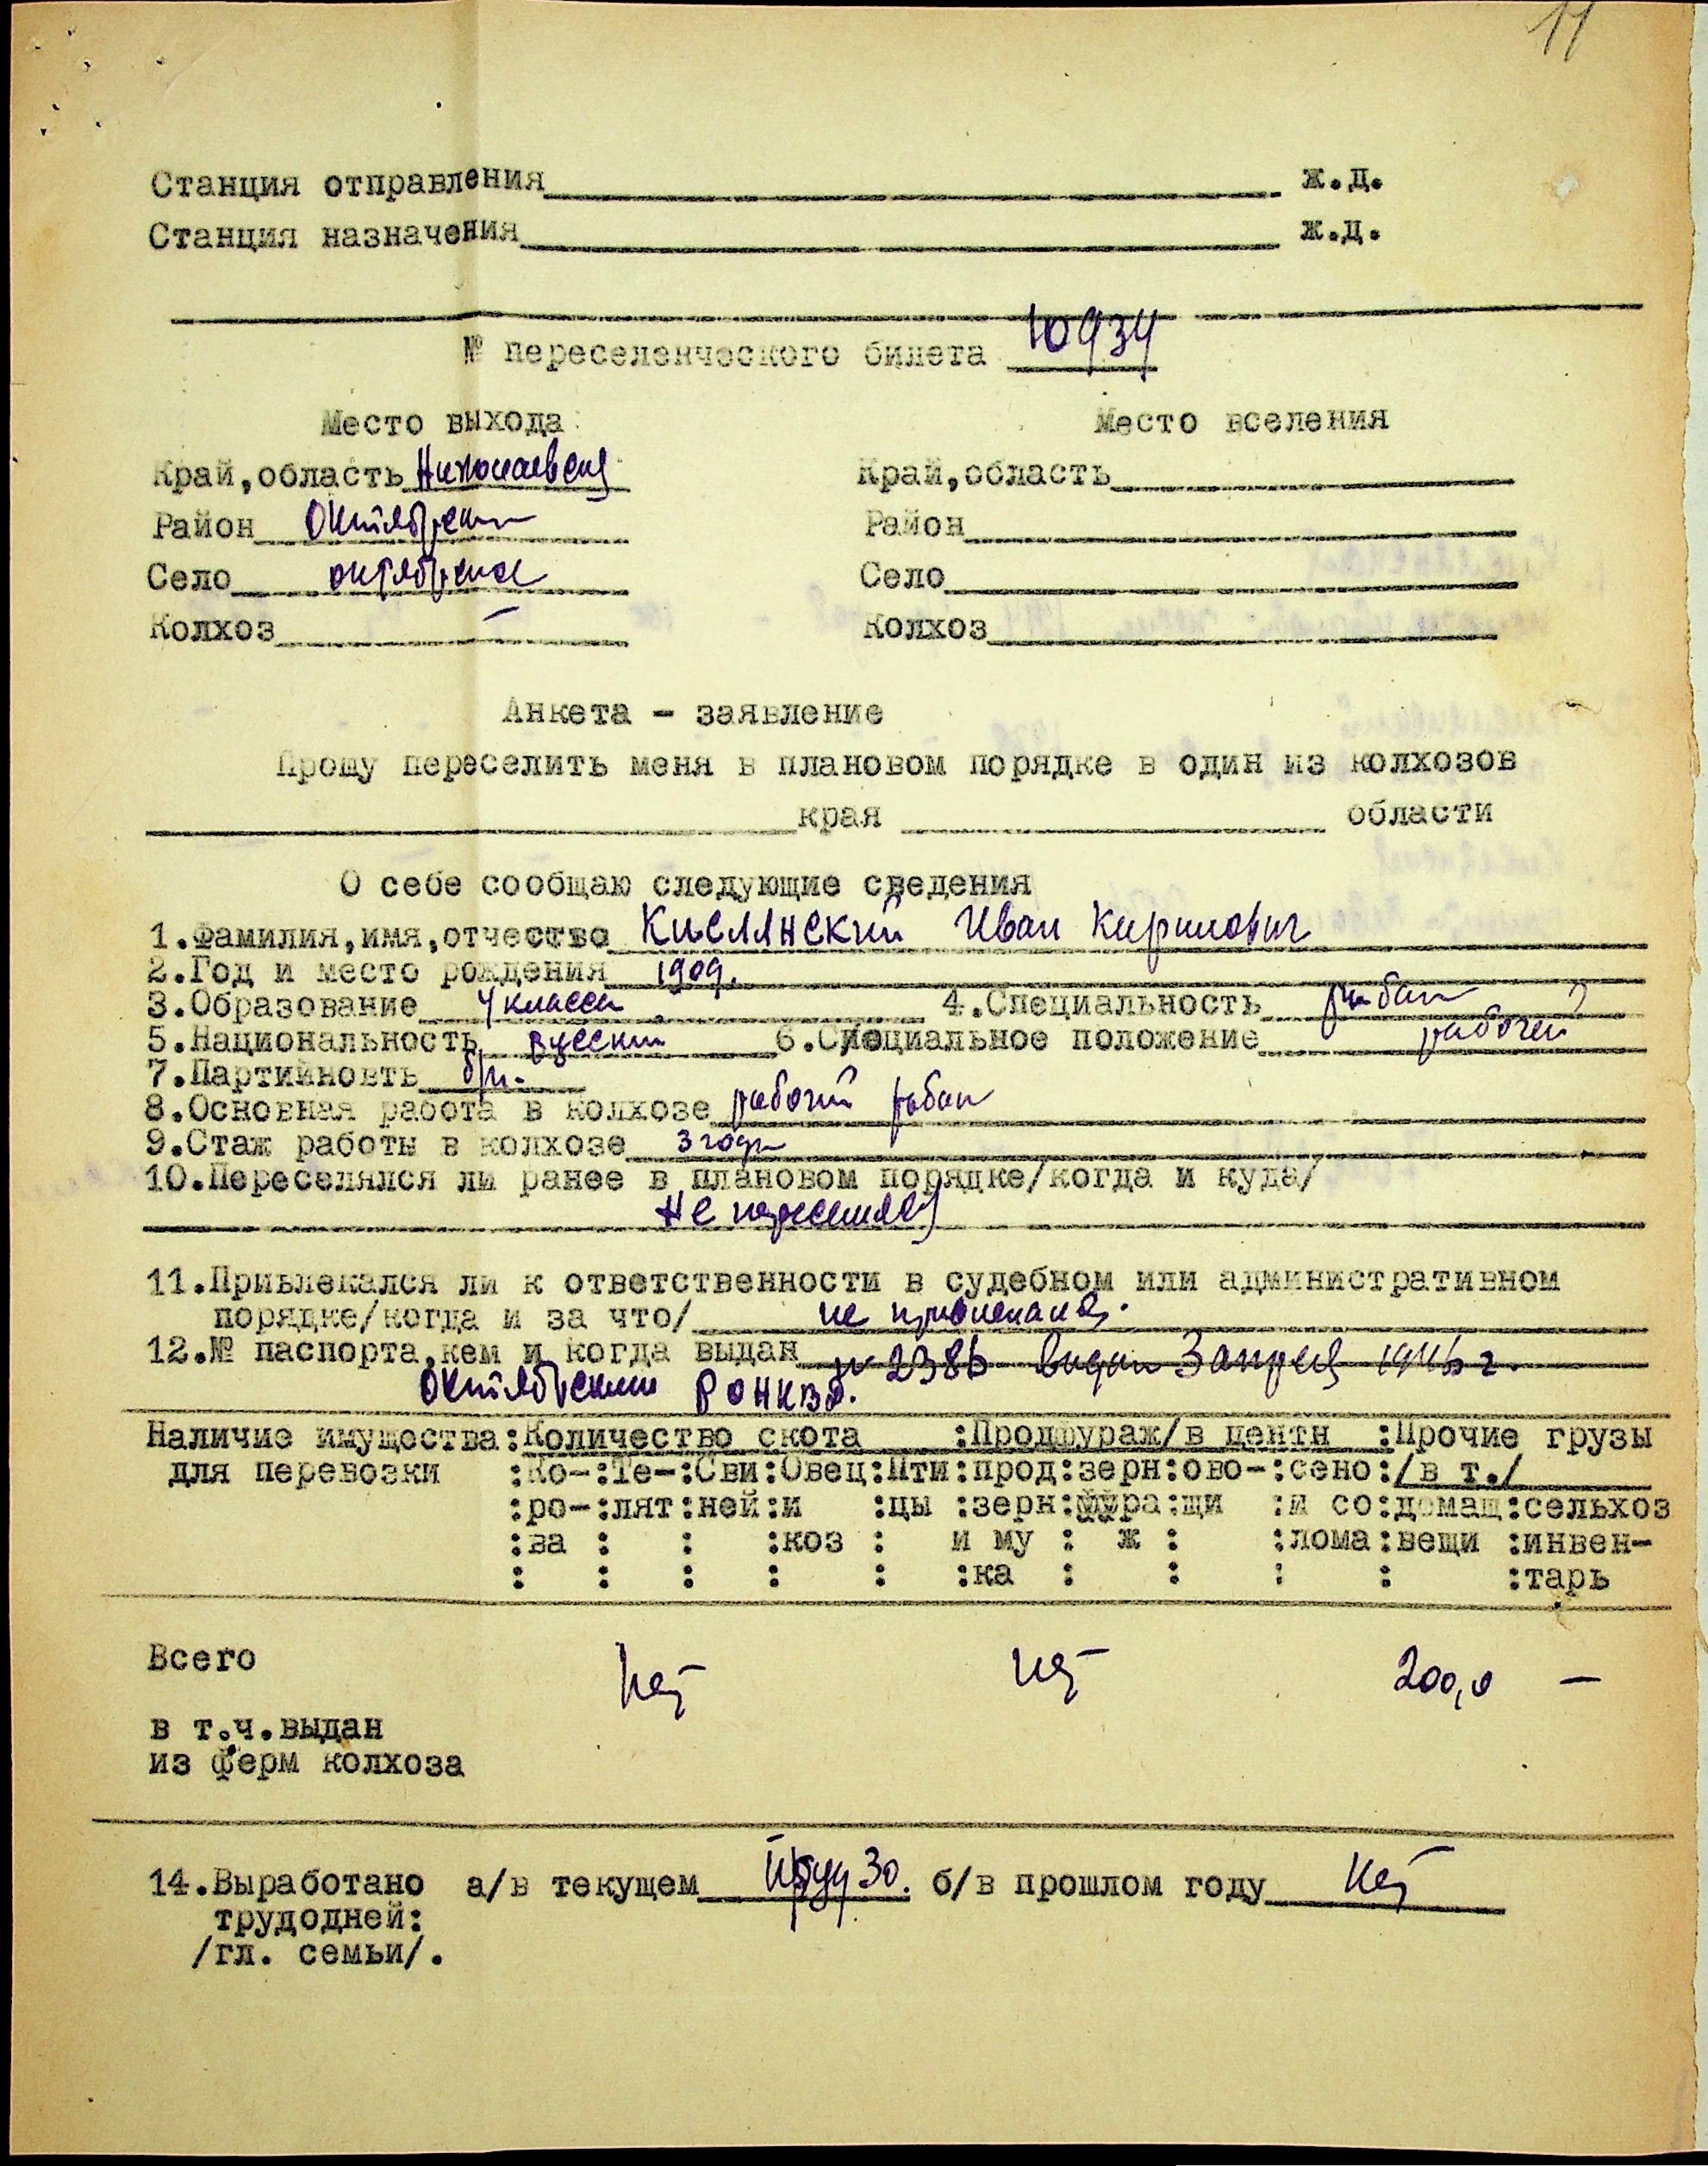 11
Станция отправления ж.д.
Станция назначения ж.д.
№ переселенческого билета 10934
Место выхода Место вселения
Край,область Николаевская Край,область
Район Октябрьский Район
Село октябрьское Село
Колхоз — Колхоз
Анкета - заявление
Прошу переселить меня в плановом порядке в один из колхозов
края области
О себе сообщаю следующие сведения
1.Фамилия,имя,отчество Кислянский Иван Кирилович
2.Год и место рождения 1909.
3.Образование 4 класса 4.Специальность рыбак
5.Национальность русский 6.Социальное положение рабочий
7.Партийновть б/п.
8.Основная работа в колхозе рабочий рыбак
9.Стаж работы в колхозе 3 года
10.Переселялся ли ранее в плановом порядке/когда и куда/
Не переселялся
11.Привлекался ли к ответственности в судебном или административном
порядке/когда и за что/ не привлекался.
12.№ паспорта,кем и когда выдан № 2386 выдан 3 апреля 1946 г.
Октябрьским РОНКВД.
Наличие имущества:Количество скота :Продфураж/в центн :Прочие грузы
для перевозки :Ко-:Те-:Сви:Овец:Пти:прод:зерн:ово-:сено:/в т./
:ро-:лят:ней:и :цы :зерн:фура:щи :и со:домаш:сельхоз
:ва : : :коз : и му : ж : :лома:вещи :инвен-
: : : : : :ка : : : : :тарь
Всего Нет нет 200,0 —
в т.ч.выдан
из ферм колхоза
14.Выработано а/в текущем 30. б/в прошлом году Нет
трудодней:
/гл. семьи/.